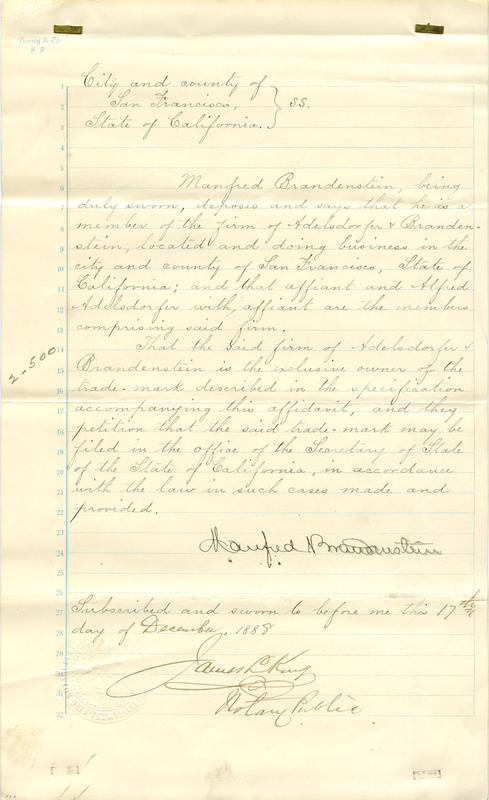 City and county of
San Francisco, } SS.
State of California.
Manfred Brandenstein, being
duly sworn, deposes and says that he is a
member of the firm of Adelsdorfer & Branden-
stein, located and doing business in the
city and county of San Francisco, State of
California; and that affiant and Alfred
Adelsdorfer with affiant are the members
comprising said firm.
That the said firm of Adelsdorfer &
Brandenstein is the exclusive owner of the
trade-mark described in the specification
accompanying this affidavit, and they
petition that the said trade-mark may be
filed in the office of the Secretary of State
of the State of California, in accordance
with the law in such cases made and
provided.
Manfred Brandenstein
Subscribed and sworn to before me this 17th
day of December, 1888
James L. King
Notary Public
2-500
1
2
3
4
5
6
7
8
9
10
11
12
13
14
15
16
17
18
19
20
21
22
23
24
25
26
27
28
29
30
31
32